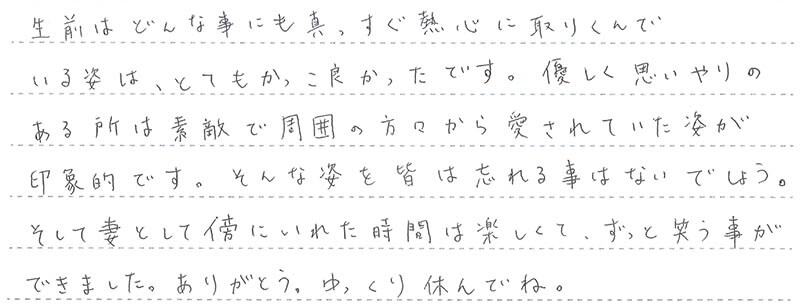 生前はどんな事にも真っすぐ熱心に取りくんで
いる姿は、とてもかっこ良かったです。優しく思いやりの
ある所は素敵で周囲の方々から愛されていた姿が
印象的です。そんな姿を皆は忘れる事はないでしょう。
そして妻として傍にいれた時間は楽しくて、ずっと笑う事が
できました。ありがとう。ゆっくり休んでね。